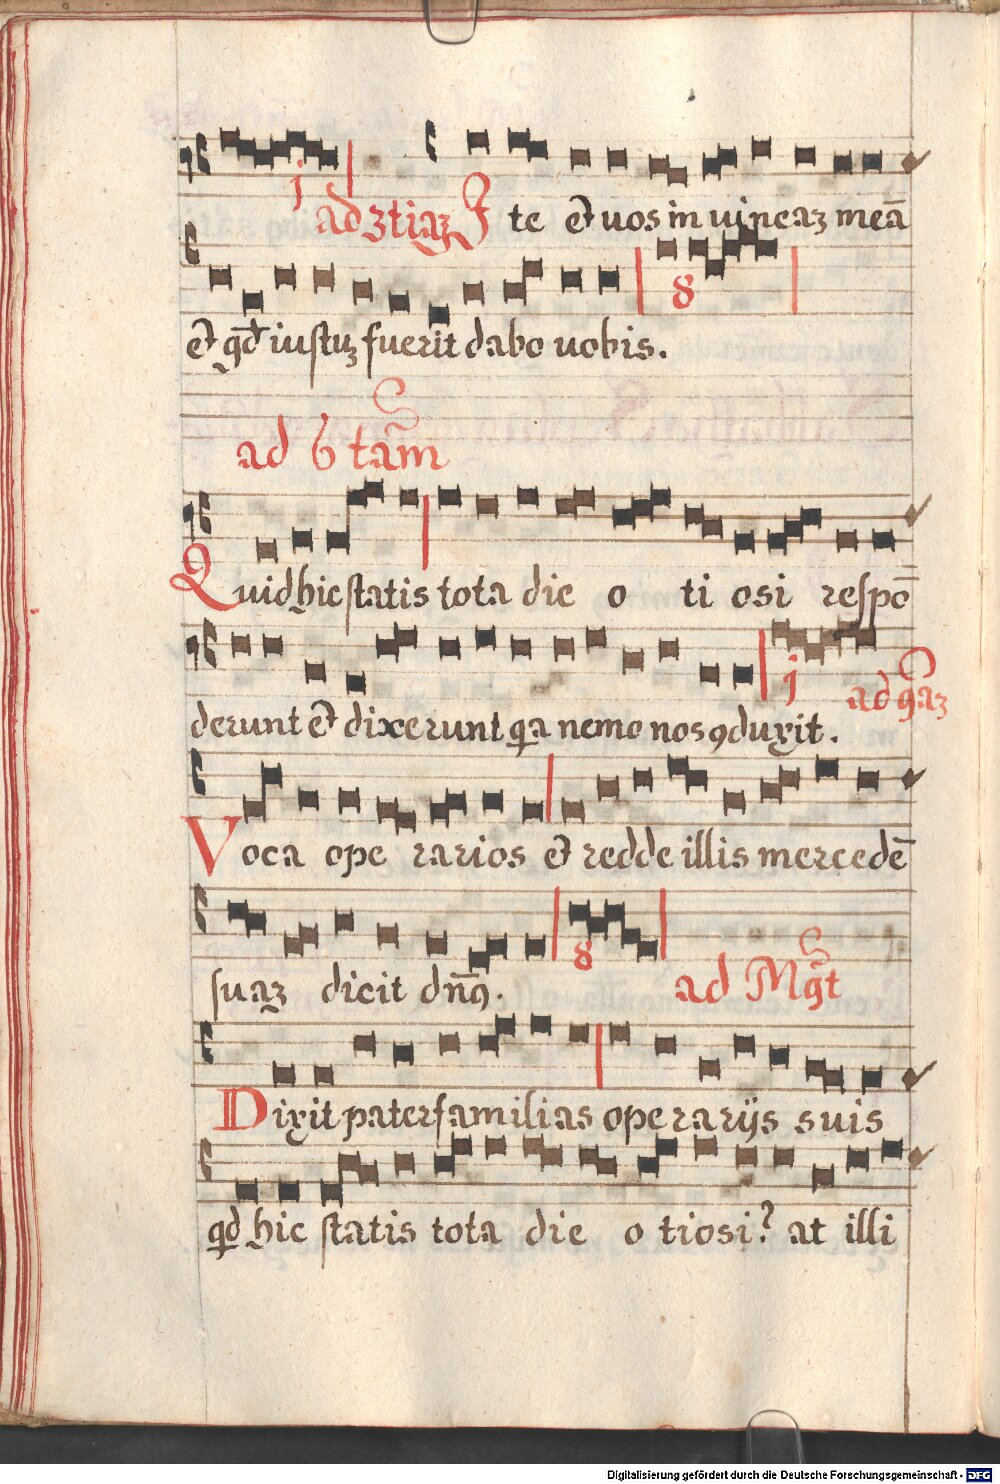 j ad 3tiaʒ Ite et uos in uineaʒ meā
et qd iustuʒ fuerit dabo uobis. 8
ad 6 tam̄
Quid hic statis tota die otiosi respō
derunt et dixerunt qa nemo nos 9duxit. j ad 9aʒ
Voca operarios et redde illis mercedē
suaʒ dicit dn̄9. 8 ad Mgt
Dixit paterfamilias operarijs suis
qd hic statis tota die otiosi? at illi
Digitalisierung gefördert durch die Deutsche Forschungsgemeinschaft - DFG